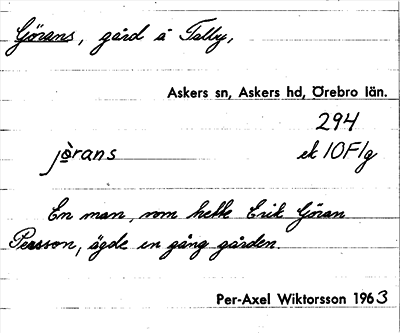 Görans, gård å Tally,
Askers sn, Askers hd, Örebro län.
294
jò̱rans ek 10F1g
En man, som hette Erik Göran
Persson, ägde en gång gården.
Per-Axel Wiktorsson 1963